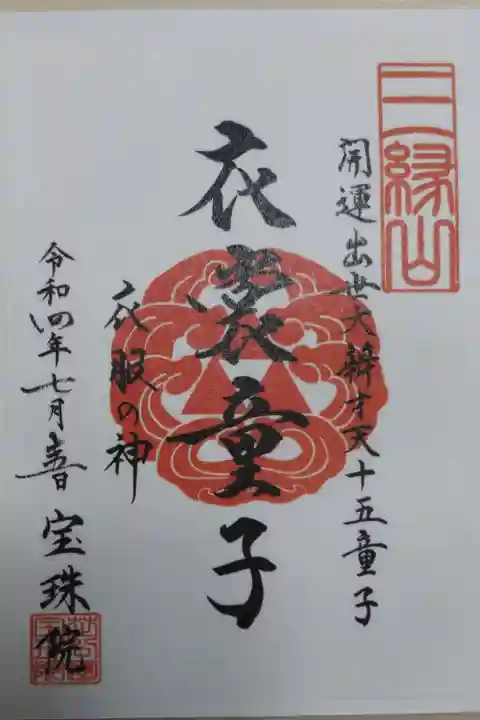 三縁山
開運出世大辨才天十五童子
衣裳童子
衣服の神
令和四年七月吉日 宝珠院